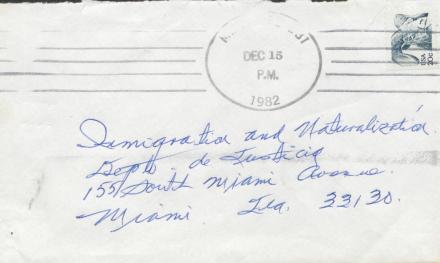 DEC 15
P.M.
1982
USA 20c
Immigration and Naturalización
Depto. de Justicia
155 South Miami Avenue.
Miami. Fla. 33130.